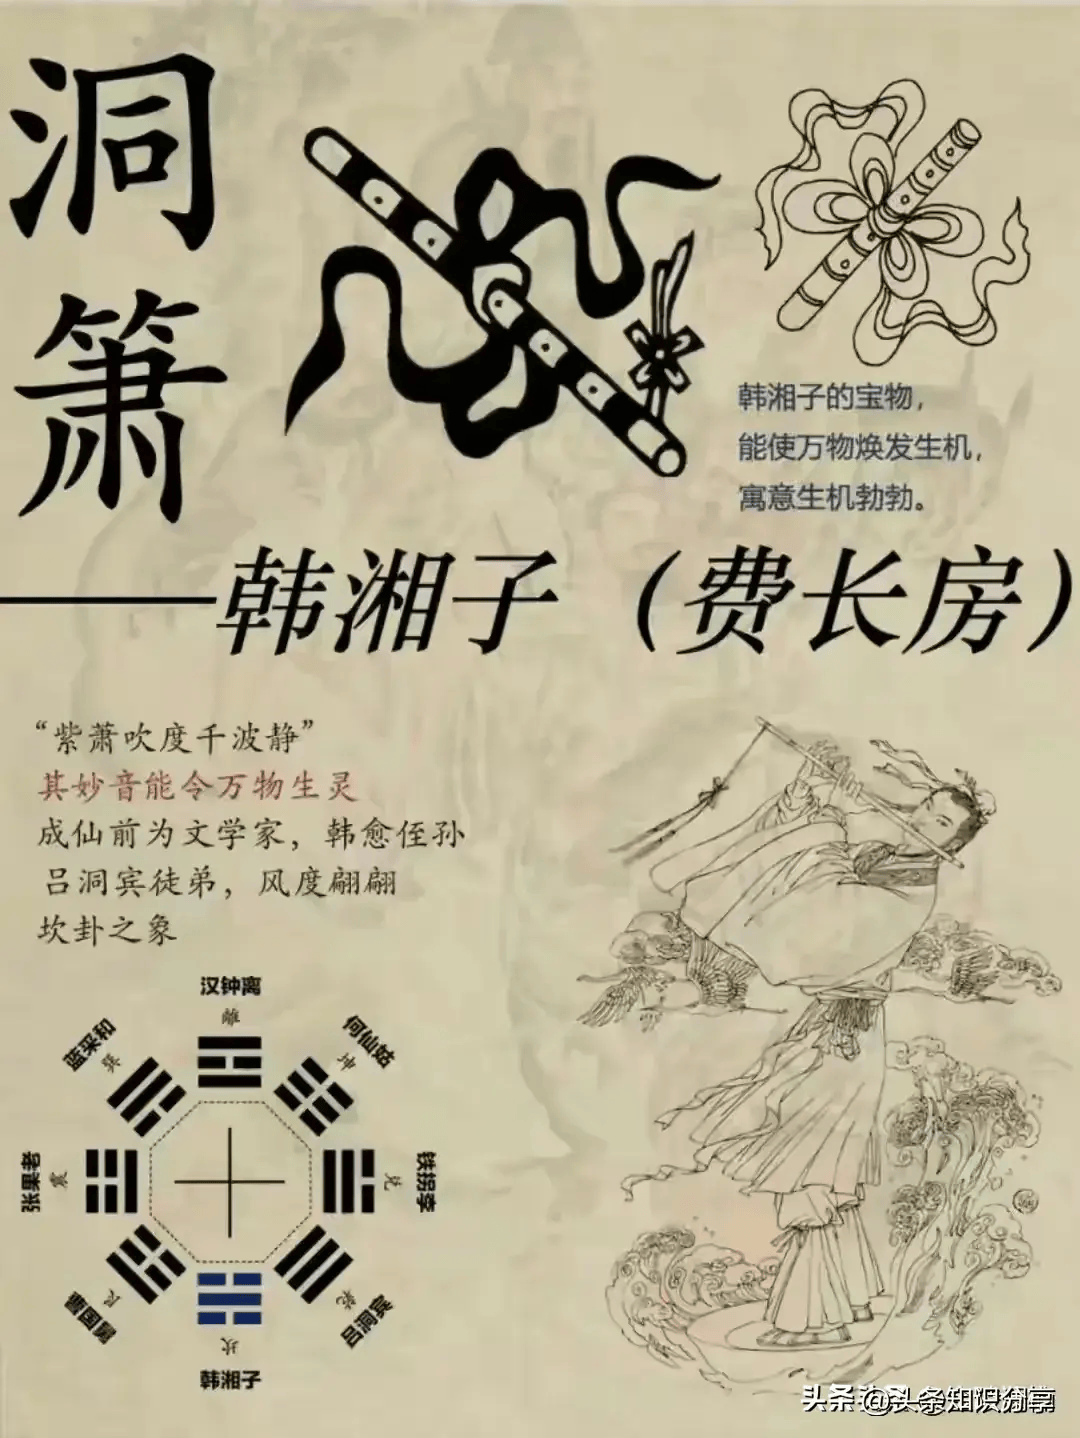 洞
箫
——韩湘子（费长房）
韩湘子的宝物，
能使万物焕发生机，
寓意生机勃勃。
“紫萧吹度千波静”
其妙音能令万物生灵
成仙前为文学家，韩愈侄孙
吕洞宾徒弟，风度翩翩
坎卦之象
汉钟离
離
何仙姑
坤
铁拐李
兑
吕洞宾
乾
韩湘子
坎
曹国舅
艮
张果老
震
蓝采和
巽
头条 @头条知识分享